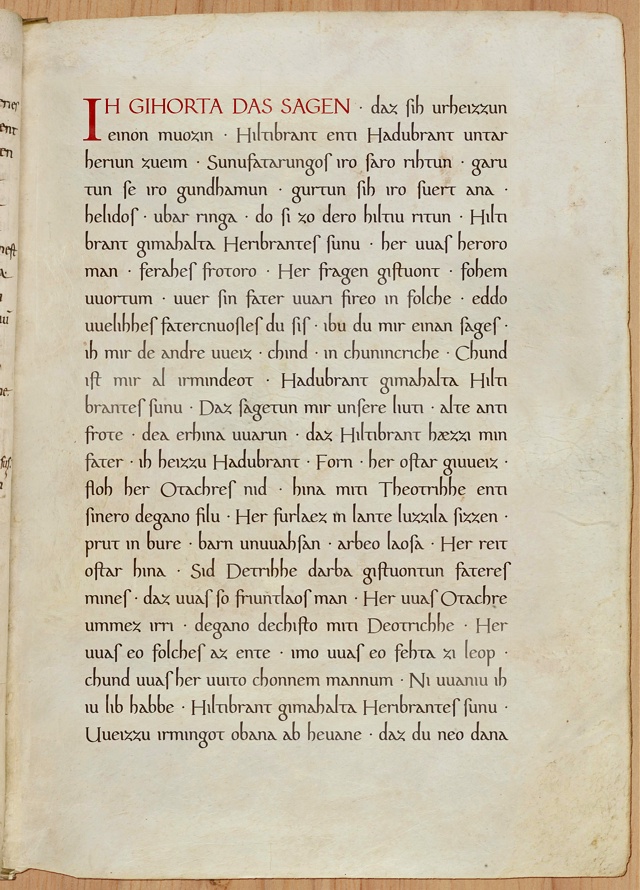 IH GIHORTA DAS SAGEN · daz sih urheizzun
einon muozin · Hiltibrant enti Hadubrant untar
heriun zueim · Sunufatarungos iro saro rihtun · garu
tun se iro gundhamun · gurtun sih iro suert ana ·
helidos · ubar ringa · do si zo dero hiltiu ritun · Hilti
brant gimahalta Heribrantes sunu · her uuas heroro
man · ferahes frotoro · Her fragen gistuont · fohem
uuortum · uuer sin fater uuari fireo in folche · eddo
uuelihhes fatercnuosles du sis · ibu du mir einan sages ·
ih mir de andre uueiz · chind · in chunincriche · Chund
ist mir al irmindeot · Hadubrant gimahalta Hilti
brantes sunu · Daz sagetun mir unsere liuti · alte anti
frote · dea erhina uuarun · daz Hiltibrant hæzzi min
fater · ih heizzu Hadubrant · Forn · her ostar giuueiz ·
floh her Otachres nid · hina miti Theotrihhe enti
sinero degano filu · Her furlaez in lante luzzila sizzen ·
prut in bure · barn unuuahsan · arbeo laosa · Her reit
ostar hina · Sid Detrihhe darba gistuontun fateres
mines · daz uuas so friuntlaos man · Her uuas Otachre
ummez irri · degano dechisto miti Deotrichhe · Her
uuas eo folches az ente · imo uuas eo fehta zi leop ·
chund uuas her uuito chonnem mannum · Ni uuaniu ih
iu lib habbe · Hiltibrant gimahalta Heribrantes sunu ·
Uueizzu irmingot obana ab heuane · daz du neo dana